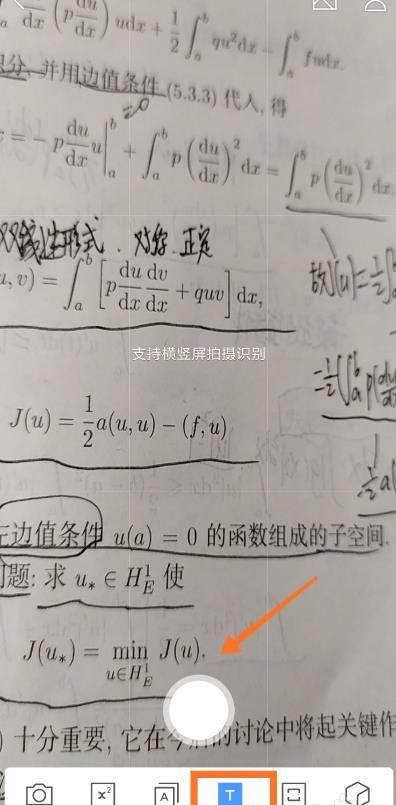 a du/dx (p du/dx) udx + 1/2 ∫_a^b qu²dx − ∫_a^b fudx.
积分, 并用边值条件 (5.3.3) 代入, 得
=0
= − p du/dx u |_a^b + ∫_a^b p (du/dx)² dx = ∫_a^b p (du/dx)² dx
双线性形式. 对称. 正定
u, v) = ∫_a^b [p du/dx dv/dx + quv] dx,
支持横竖屏拍摄识别
J(u) = 1/2 a(u, u) − (f, u)
左边值条件 u(a) = 0 的函数组成的子空间.
问题: 求 u_* ∈ H_E^1 使
J(u_*) = min_{u∈H_E^1} J(u).
) 十分重要, 它在今后的讨论中将起关键作
x²
A
T